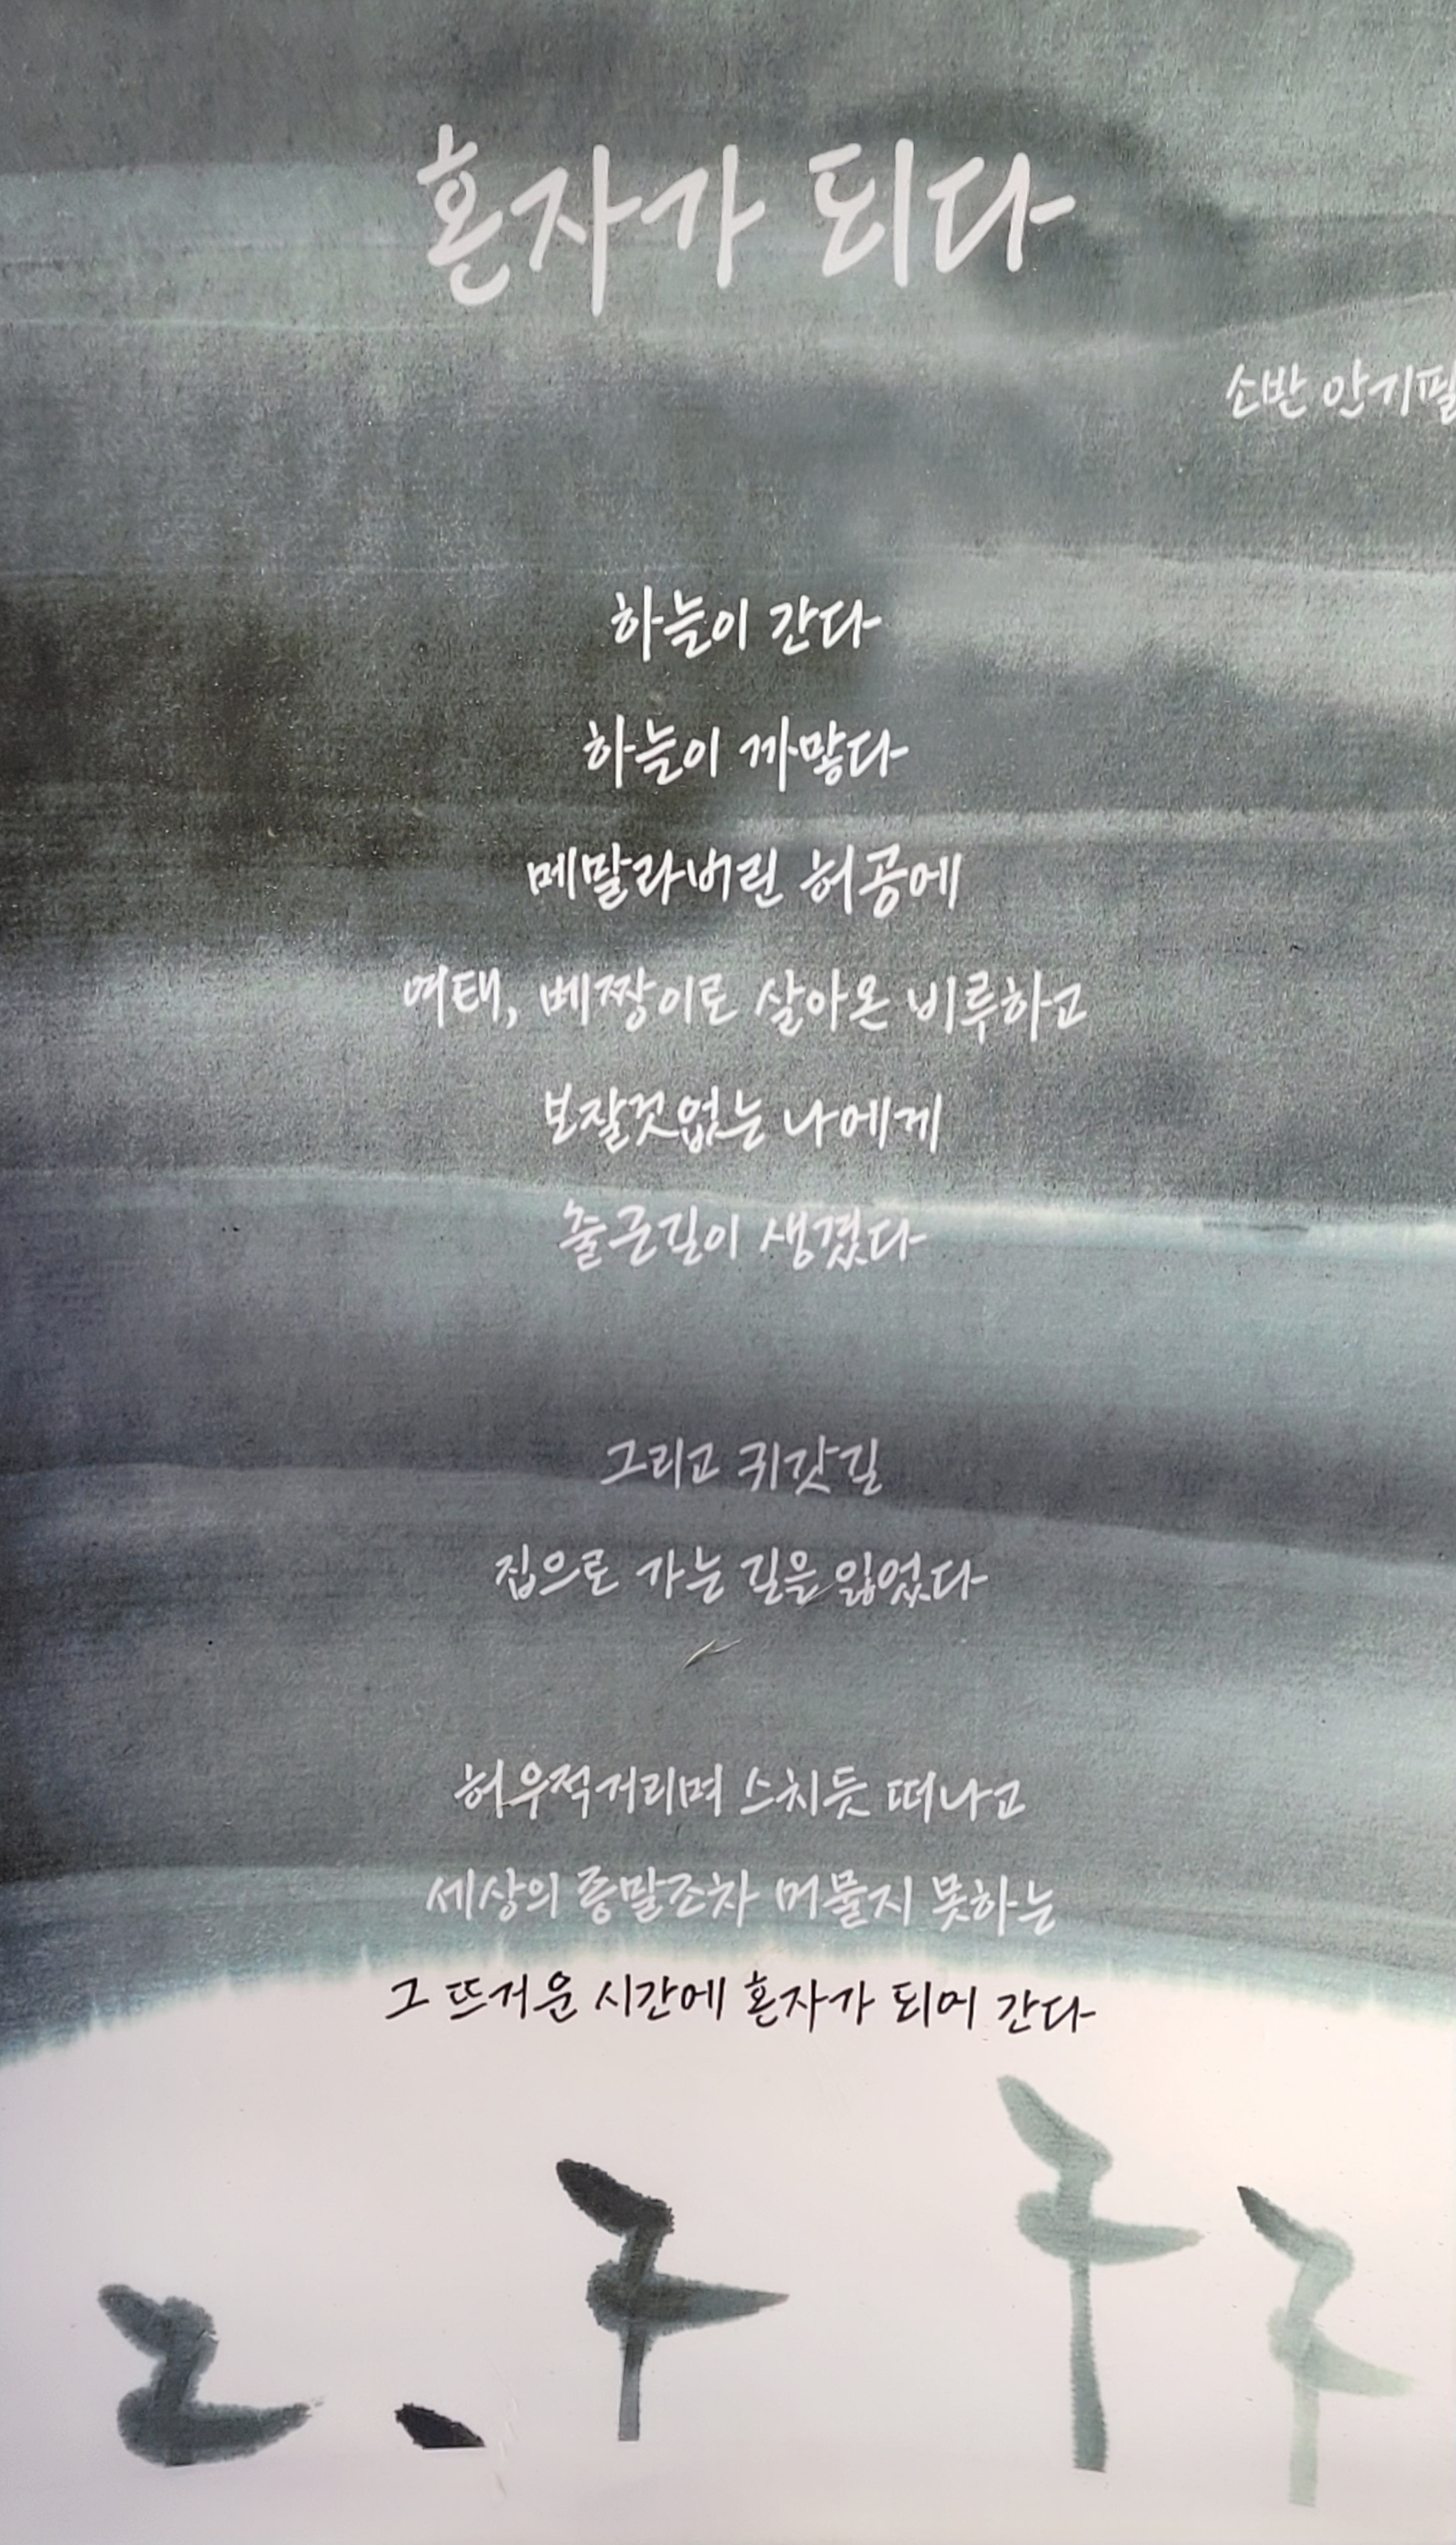 혼자가 되다
소반 안기필
하늘이 간다
하늘이 까맣다
메말라버린 허공에
여태, 베짱이로 살아온 비루하고
보잘것없는 나에게
출근길이 생겼다
그리고 귀갓길
집으로 가는 길을 잃었다
허우적거리며 스치듯 떠나고
세상의 종말조차 머물지 못하는
그 뜨거운 시간에 혼자가 되어 간다